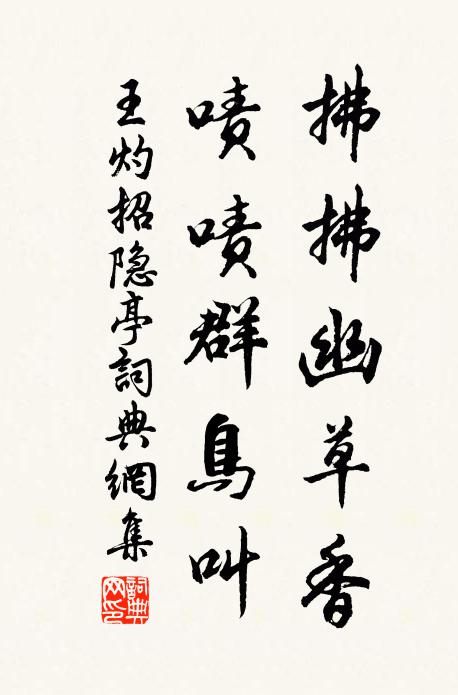 拂拂幽草香
啧啧群鳥叫
王灼招隐亭詞典網集
詞典网印